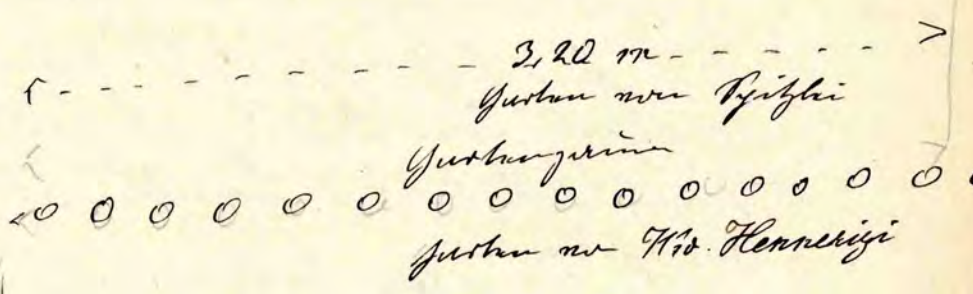 3,20 m
Garten von Spitzlei
Gartenzaun
Garten von Wid. Hennerizi